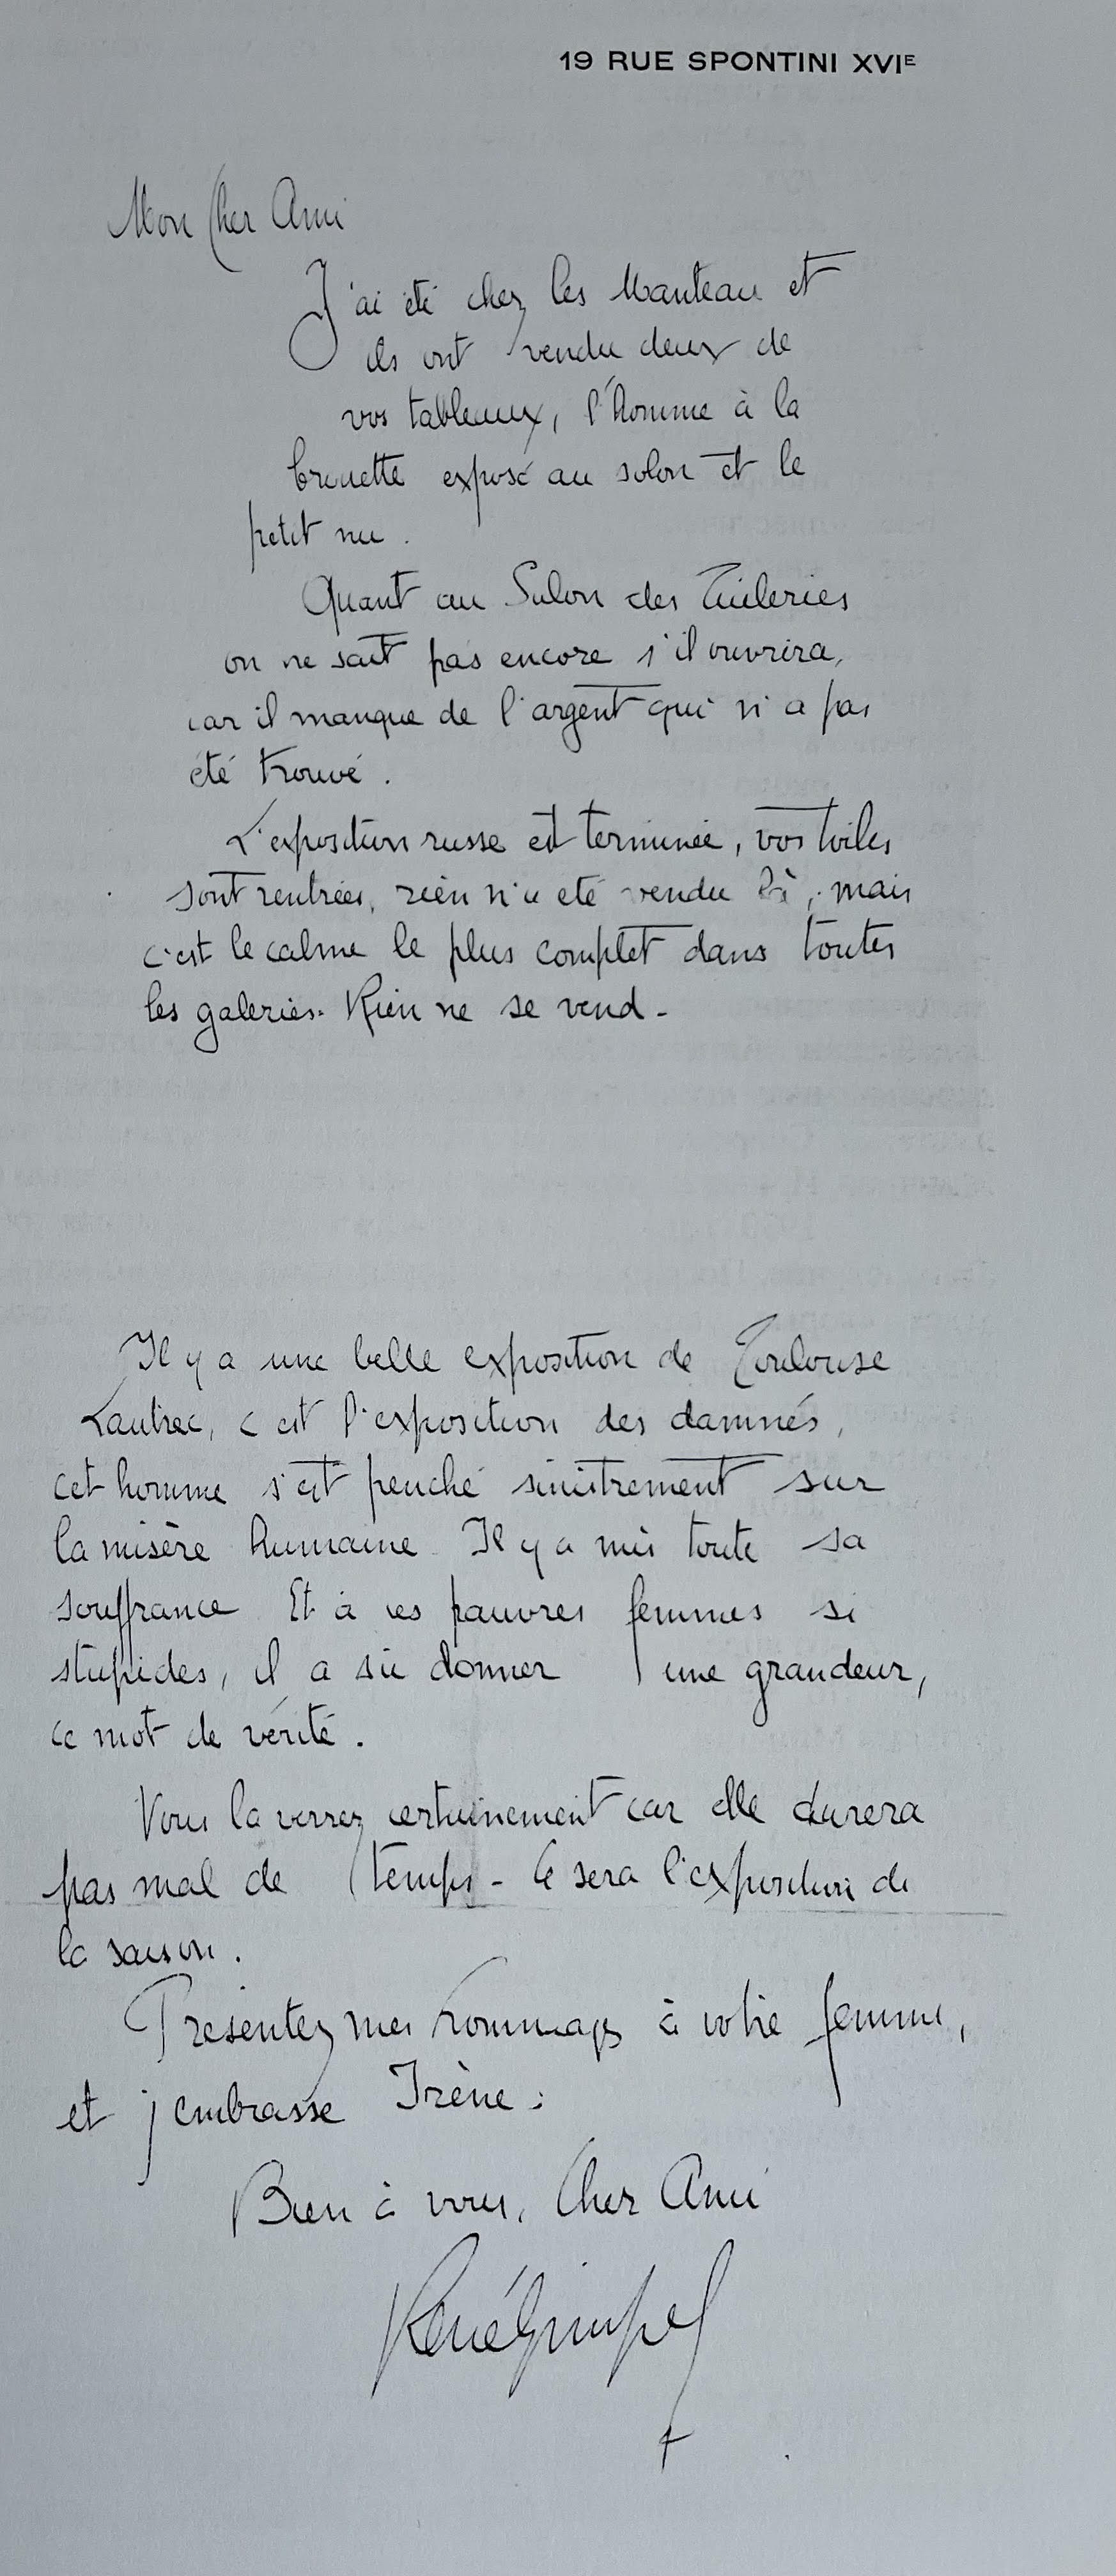 19 RUE SPONTINI XVIE
Mon Cher Ami
J'ai été chez les Manteau et
ils ont vendu deux de
vos tableaux, l'homme à la
brouette exposé au salon et le
petit nu.
Quant au Salon des Tuileries
on ne sait pas encore s'il ouvrira,
car il manque de l'argent qui n'a pas
été trouvé.
L'exposition russe est terminée, vos toiles
sont rentrées, rien n'a été vendu là, mais
c'est le calme le plus complet dans toutes
les galeries. Rien ne se vend -
Il y a une belle exposition de Toulouse
Lautrec, c'est l'exposition des damnés,
cet homme s'est penché sinistrement sur
la misère humaine. Il y a mis toute sa
souffrance Et à ces pauvres femmes si
stupides, il a su donner une grandeur,
ce mot de vérité.
Vous la verrez certainement car elle durera
pas mal de temps - Ce sera l'exposition de
la saison.
Présentez mes hommages à votre femme,
et j'embrasse Irène.
Bien à vous, Cher Ami
René Gimpel